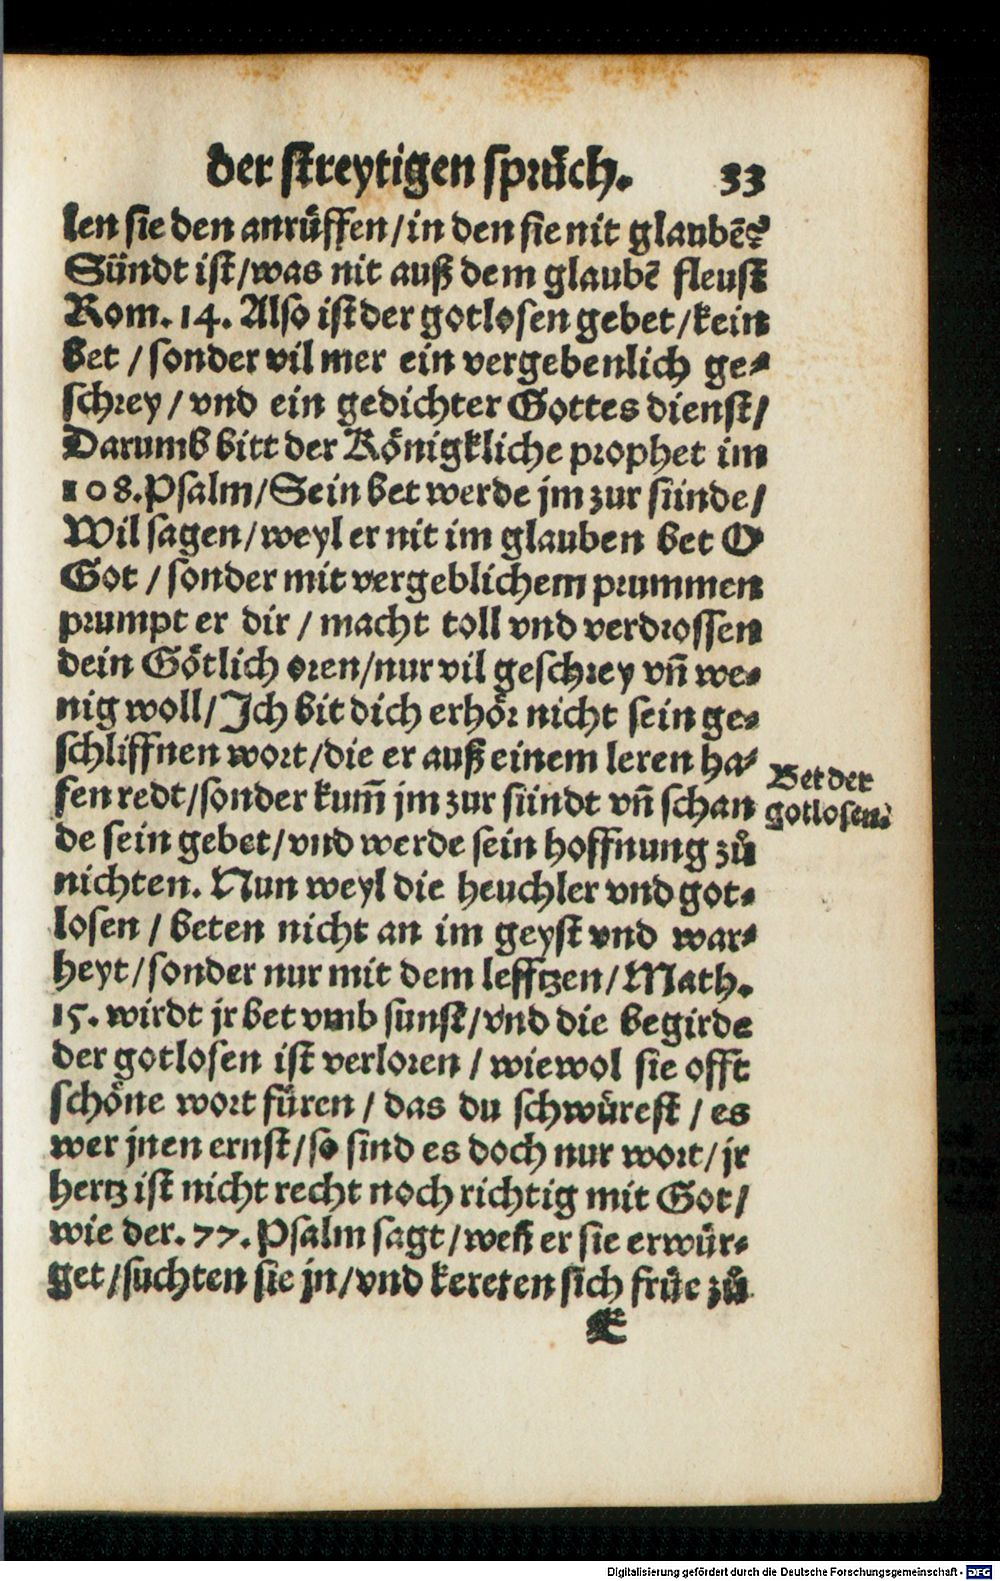 der streytigen sprůch. 33
len sie den anrůffen/in den sie nit glaubē?
Sündt ist/was nit auß dem glaubē fleust
Rom. 14. Also ist der gotlosen gebet/kein
bet / sonder vil mer ein vergebenlich ge-
schrey / vnd ein gedichter Gottes dienst/
Darumb bitt der Königkliche prophet im
108. Psalm/Sein bet werde jm zur sünde/
Wil sagen/weyl er nit im glauben bet O
Got / sonder mit vergeblichem prummen
prumpt er dir / macht toll vnd verdrossen
dein Götlich oren/nur vil geschrey vñ we-
nig woll/Ich bit dich erhör nicht sein ge-
schliffnen wort/die er auß einem leren ha-
fen redt/sonder kum̃ jm zur sündt vñ schan
de sein gebet/vnd werde sein hoffnung zů
nichten. Nun weyl die heuchler vnd got-
losen / beten nicht an im geyst vnd war-
heyt/sonder nur mit dem lefftzen/Math.
15. wirdt jr bet vmb sunst/vnd die begirde
der gotlosen ist verloren / wiewol sie offt
schöne wort füren / das du schwürest / es
wer jnen ernst/so sind es doch nur wort/jr
hertz ist nicht recht noch richtig mit Got/
wie der. 77. Psalm sagt/weñ er sie erwür-
get/suchten sie jn/vnd kereten sich frůe zů
E
Bet der
gotlosen.
Digitalisierung gefördert durch die Deutsche Forschungsgemeinschaft - DFG